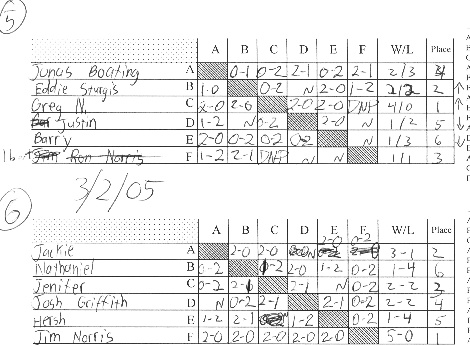 5
A B C D E F W/L Place
Junas Boating A 0-1 0-2 2-1 0-2 2-1 2/3
Eddie Sturgis B 1-0 0-2 N 2-0 1-2 2/2 2
Greg N. C 2-0 2-0 2-0 2-0 DNF 4/0 1
Justin D 1-2 N 0-2 2-0 N 1/2 5
Barry E 2-0 0-2 0-2 0-2 N 1/3 6
Ron Norris F 1-2 2-1 DNF N N 1/1 3
3/2/05
6
2-0 0-2
A B C D E F W/L Place
Jackie A 2-0 2-0 3-1 2
Nathaniel B 0-2 0-2 2-0 1-2 0-2 1-4 6
Jenifer C 0-2 2-1 N 0-2 2-2
Josh Griffith D N 0-2 2-1 2-1 0-2 2-2 4
Hersh E 1-2 2-1 1-2 0-2 1-4 5
Jim Norris F 2-0 2-0 2-0 2-0 2-0 5-0 1